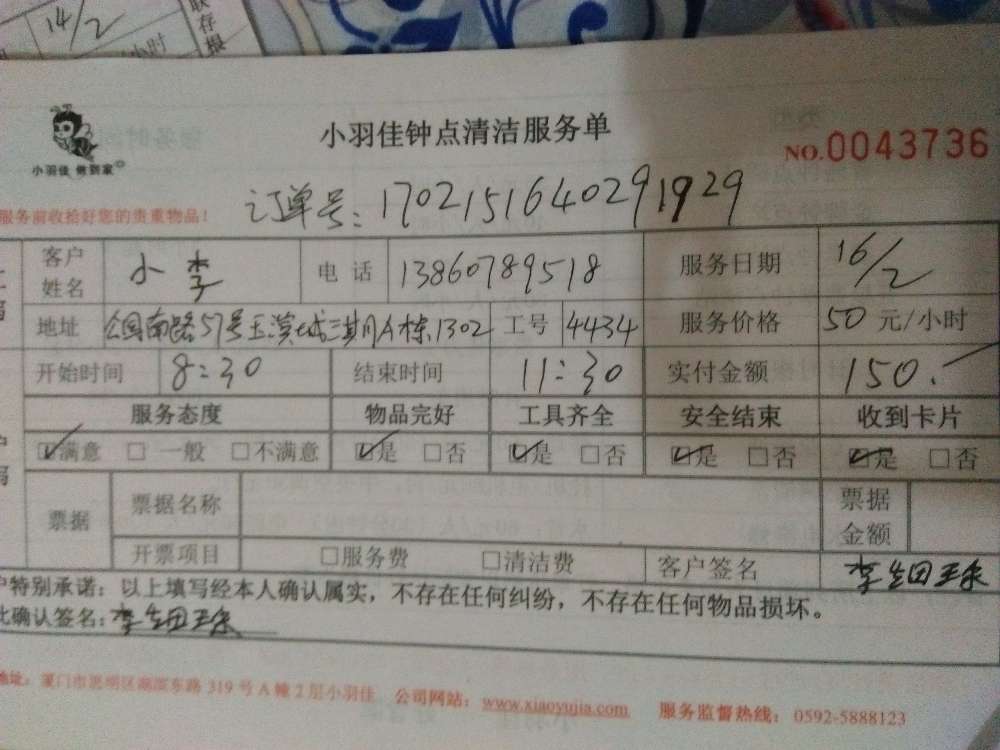 14/2
小时
取存根
小羽佳钟点清洁服务单
小羽佳 做到家
NO.0043736
订单号:1702151640291929
服务前收拾好您的贵重物品!
客户姓名 小李 电话 13860789518 服务日期 16/2
地址 公园南路57号玉滨城三期A栋1302 工号 4434 服务价格 50 元/小时
开始时间 8:30 结束时间 11:30 实付金额 150.
服务态度 物品完好 工具齐全 安全结束 收到卡片
☑满意 □一般 □不满意 ☑是 □否 ☑是 □否 ☑是 □否 ☑是 □否
票据 票据名称 票据金额
开票项目 □服务费 □清洁费 客户签名 李
户特别承诺:以上填写经本人确认属实,不存在任何纠纷,不存在任何物品损坏。
此确认签名:李
地址:厦门市思明区湖滨东路 319 号 A 幢 2 层小羽佳 公司网站:www.xiaoyujia.com 服务监督热线:0592-5888123